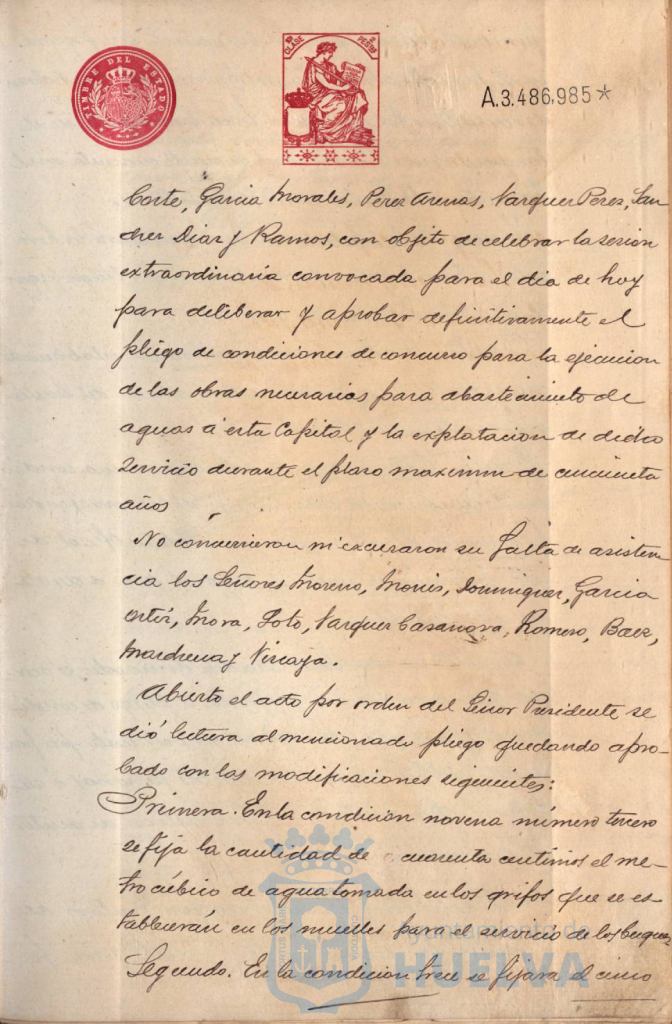 TIMBRE DEL ESTADO
CLASE
PESTAS
A.3.486,985*
Corte, Garcia Morales, Perez Arenas, Vazquez Perez, San
chez Diaz y Ramos, con objeto de celebrar la sesion
extraordinaria convocada para el dia de hoy
para deliberar y aprobar definitivamente el
pliego de condiciones de concurso para la ejecucion
de las obras necesarias para abastecimiento de
aguas á esta Capital y la explotacion de dicho
servicio durante el plazo maximun de cincuenta
años
No concurrieron ni excusaron su falta de asisten-
cia los Señores Moreno, Monis, Dominguez, Garcia
Ortiz, Mora, Soto, Vazquez Casanova, Romero, Baez,
Marchena y Vizcaya.
Abierto el acto por orden del Señor Presidente se
dió lectura al mencionado pliego quedando apro-
bado con las modificaciones siguientes:
Primera. En la condición novena número tercero
se fija la cantidad de cuarenta centimos el me-
tro cúbico de agua tomada en los grifos que se es-
tablecerán en los muelles para el servicio de los buques
Segundo. En la condicion trece se fijara el cinco
Ayuntamiento de
HUELVA